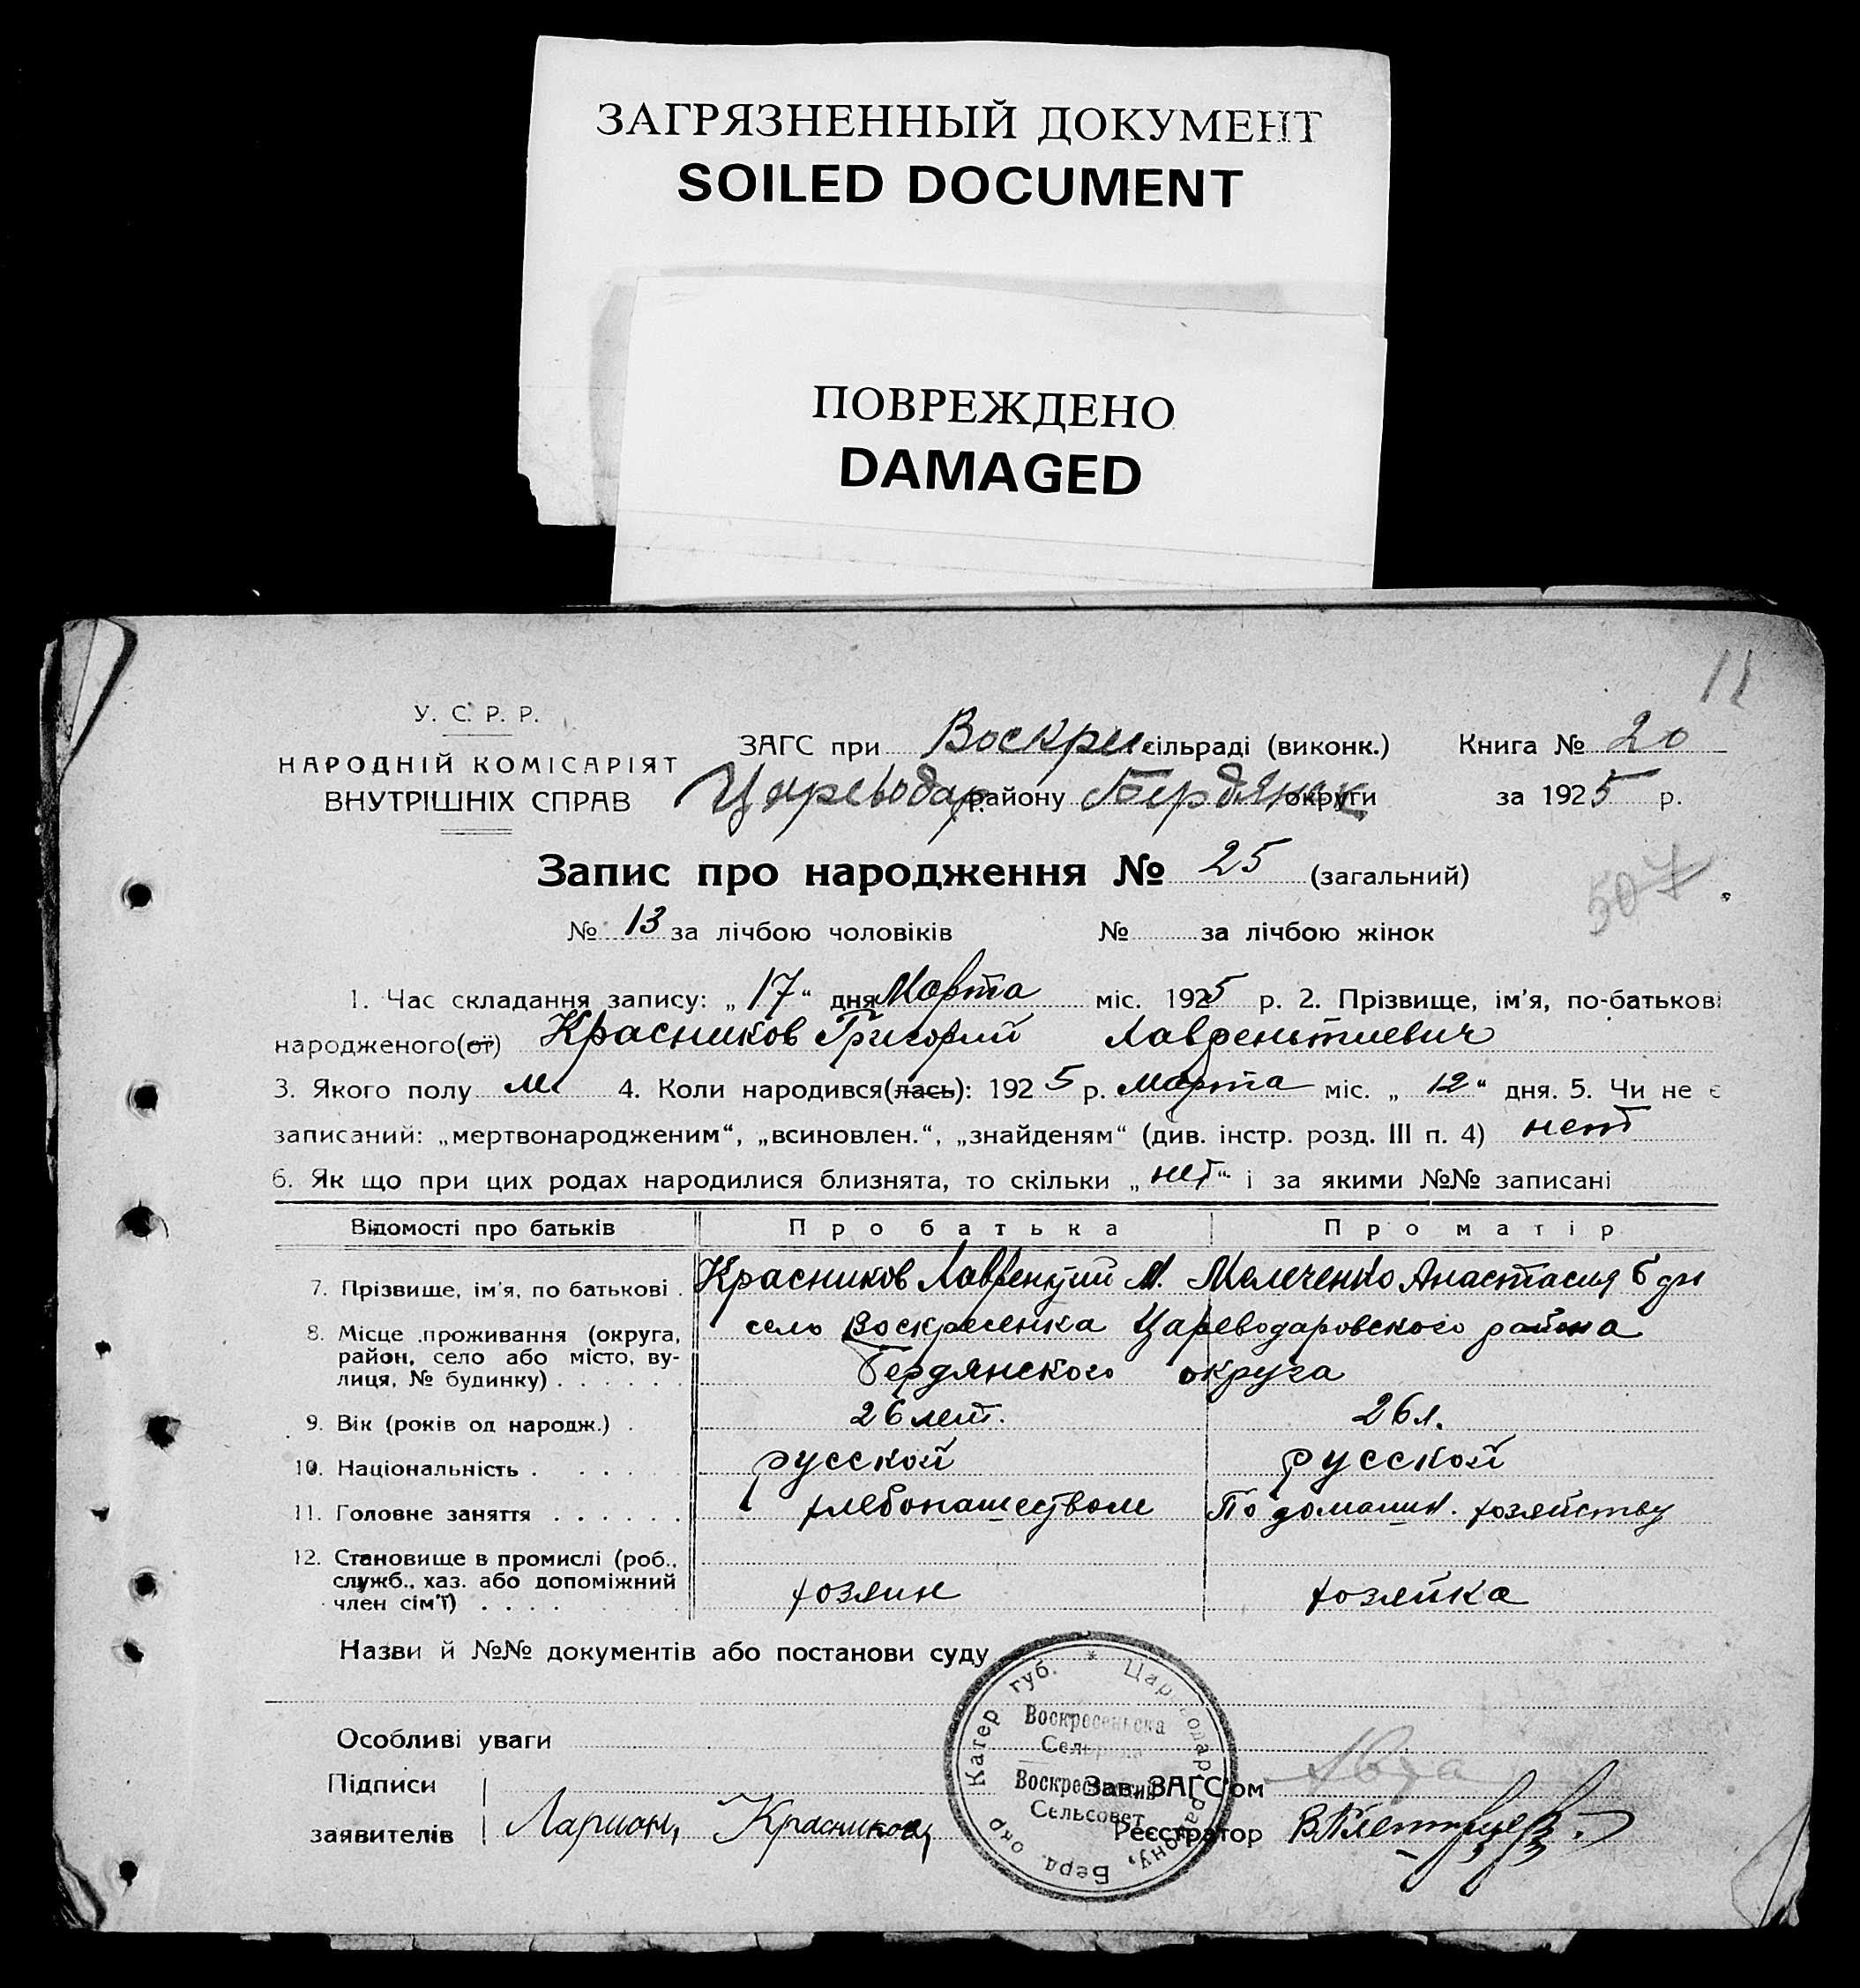 ЗАГРЯЗНЕННЫЙ ДОКУМЕНТ
SOILED DOCUMENT
ПОВРЕЖДЕНО
DAMAGED
У. С. Р. Р.
НАРОДНІЙ КОМІСАРІЯТ
ВНУТРІШНІХ СПРАВ
ЗАГС при Воскре сільраді (виконк.) Книга № 20
Цареводар району Бердянск округи за 1925 р.
Запис про народження № 25 (загальний)
507
№ 13 за лічбою чоловіків № за лічбою жінок
1. Час складання запису: „ 17 “ дня Марта міс. 1925 р. 2. Прізвище, ім'я, по-батькові
народженого(ої) Красников Григорий Лаврентиевич
3. Якого полу м 4. Коли народився(лась): 1925 р. марта міс. „ 12 “ дня. 5. Чи не є
записаний: „мертвонародженим“, „всиновлен.“, „знайденям“ (див. інстр. розд. III п. 4) нет
6. Як що при цих родах народилися близнята, то скільки „ нет “ і за якими №№ записані
Відомості про батьків Про батька Про матір
7. Прізвище, ім'я, по батькові . Красников Лаврентий М. Мелеченко Анастасия
8. Місце проживання (округа, район, село або місто, вулиця, № будинку) . . . . . . село Воскресенка Цареводаровского района
Бердянского округа
9. Вік (років од народж.) . 26 лет. 26 л.
10. Національність . . . . . русской русской
11. Головне заняття . . . . . . хлебопашеством По домашн. хозяйству
12. Становище в промислі (роб., служб., хаз. або допоміжний член сім'ї) . . . . хозяин хозяйка
Назви й №№ документів або постанови суду
Особливі уваги
Підписи
заявителів Ларион Красников
Зав. ЗАГС'ом
Реєстратор
Катер губ. * Цареводар. району, Берд. окр
Воскресенська
Сельрада
Воскресенский
Сельсовет